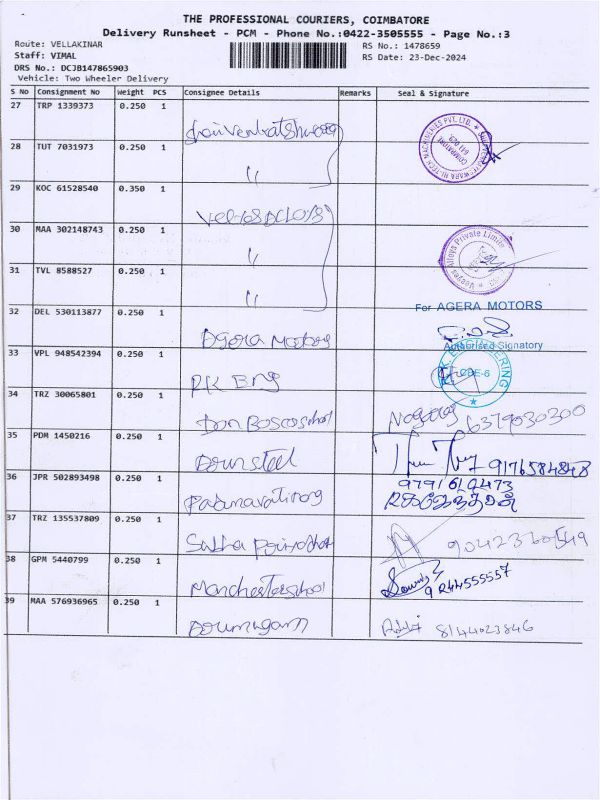 THE PROFESSIONAL COURIERS, COIMBATORE
Delivery Runsheet - PCM - Phone No.:0422-3505555 - Page No.:3
Route: VELLAKINAR
RS No.: 1478659
Staff: VIMAL
RS Date: 23-Dec-2024
DRS No.: DCJB147865903
Vehicle: Two Wheeler Delivery
S No Consignment No Weight PCS Consignee Details Remarks Seal & Signature
27 TRP 1339373 0.250 1
28 TUT 7031973 0.250 1
"
29 KOC 61528540 0.350 1
30 MAA 302148743 0.250 1
"
31 TVL 8588527 0.250 1
"
32 DEL 530113877 0.250 1 Agera Motors
For AGERA MOTORS
Authorised Signatory
33 VPL 948542394 0.250 1 P.K Eng
CBE-6
34 TRZ 30065801 0.250 1 Don Bosco School
6379030300
35 PDM 1450216 0.250 1
9176584848
36 JPR 502893498 0.250 1
9791610473
37 TRZ 135537809 0.250 1
9042360549
38 GPM 5440799 0.250 1 Manchester school
9244555557
39 MAA 576936965 0.250 1 Arumugam
8144023846